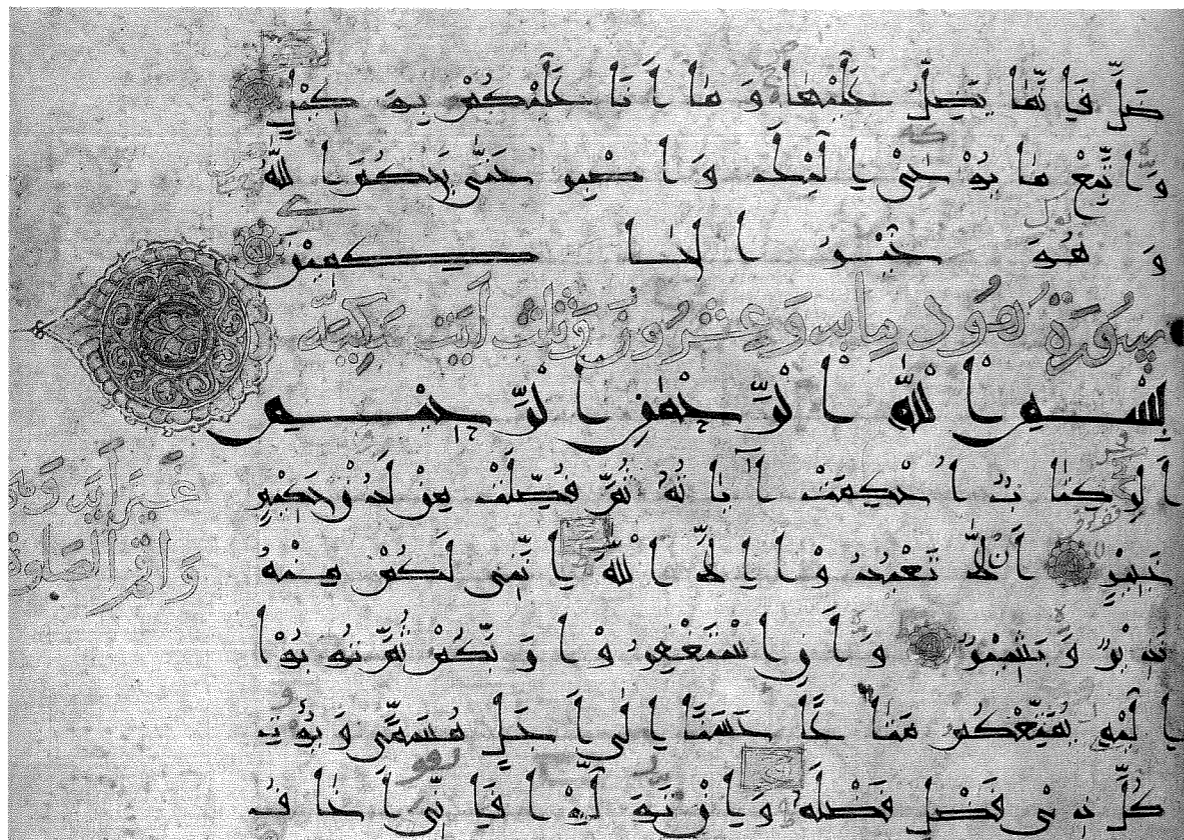 ضَلَّ فَإِنَّمَا يَضِلُّ عَلَيْهَا وَمَا أَنَا عَلَيْكُمْ بِوَكِيلٍ
وَاتَّبِعْ مَا يُوحَىٰ إِلَيْكَ وَاصْبِرْ حَتَّىٰ يَحْكُمَ اللَّهُ
وَهُوَ خَيْرُ الْحَاكِمِينَ
سُورَةُ هُود مِايه وَعِشْرُونَ وَثَلث آيَت مَكِيَّه
بِسْمِ اللَّهِ الرَّحْمَٰنِ الرَّحِيمِ
الر كِتَابٌ أُحْكِمَتْ آيَاتُهُ ثُمَّ فُصِّلَتْ مِنْ لَدُنْ حَكِيمٍ
خَبِيرٍ أَلَّا تَعْبُدُوا إِلَّا اللَّهَ إِنَّنِي لَكُمْ مِنْهُ
نَذِيرٌ وَبَشِيرٌ وَأَنِ اسْتَغْفِرُوا رَبَّكُمْ ثُمَّ تُوبُوا
إِلَيْهِ يُمَتِّعْكُمْ مَتَاعًا حَسَنًا إِلَىٰ أَجَلٍ مُسَمًّى وَيُؤْتِ
كُلَّ ذِي فَضْلٍ فَضْلَهُ وَإِنْ تَوَلَّوْا فَإِنِّي أَخَافُ